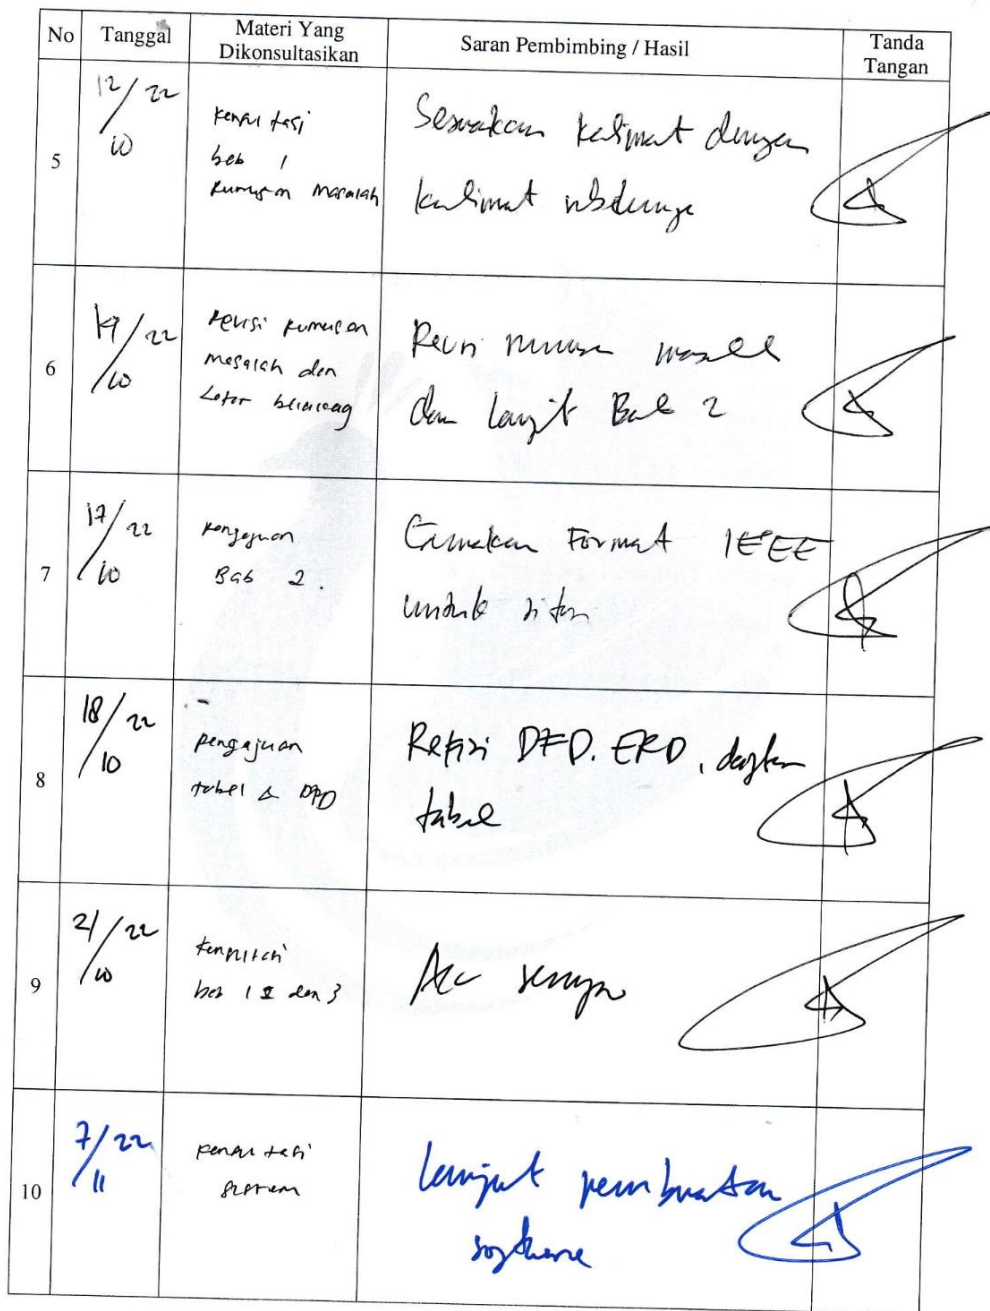 No Tanggal Materi Yang Dikonsultasikan Saran Pembimbing / Hasil Tanda Tangan
5
12/22
10
bab 1
Rumusan Masalah
Sesuaikan kalimat dengan
kalimat
6
19/22
10
revisi rumusan
masalah dan
Latar belakang
Revisi rumusan masalah
dan lanjut Bab 2
7
17/22
10
Pengajuan
Bab 2
Gunakan Format IEEE
untuk sitasi
8
18/22
10
pengajuan
tabel & DFD
Refisi DFD. ERD, dan
tabel
9
21/22
10
bab 1 2 dan 3
Acc
10
7/22
11
lanjut pembuatan
software